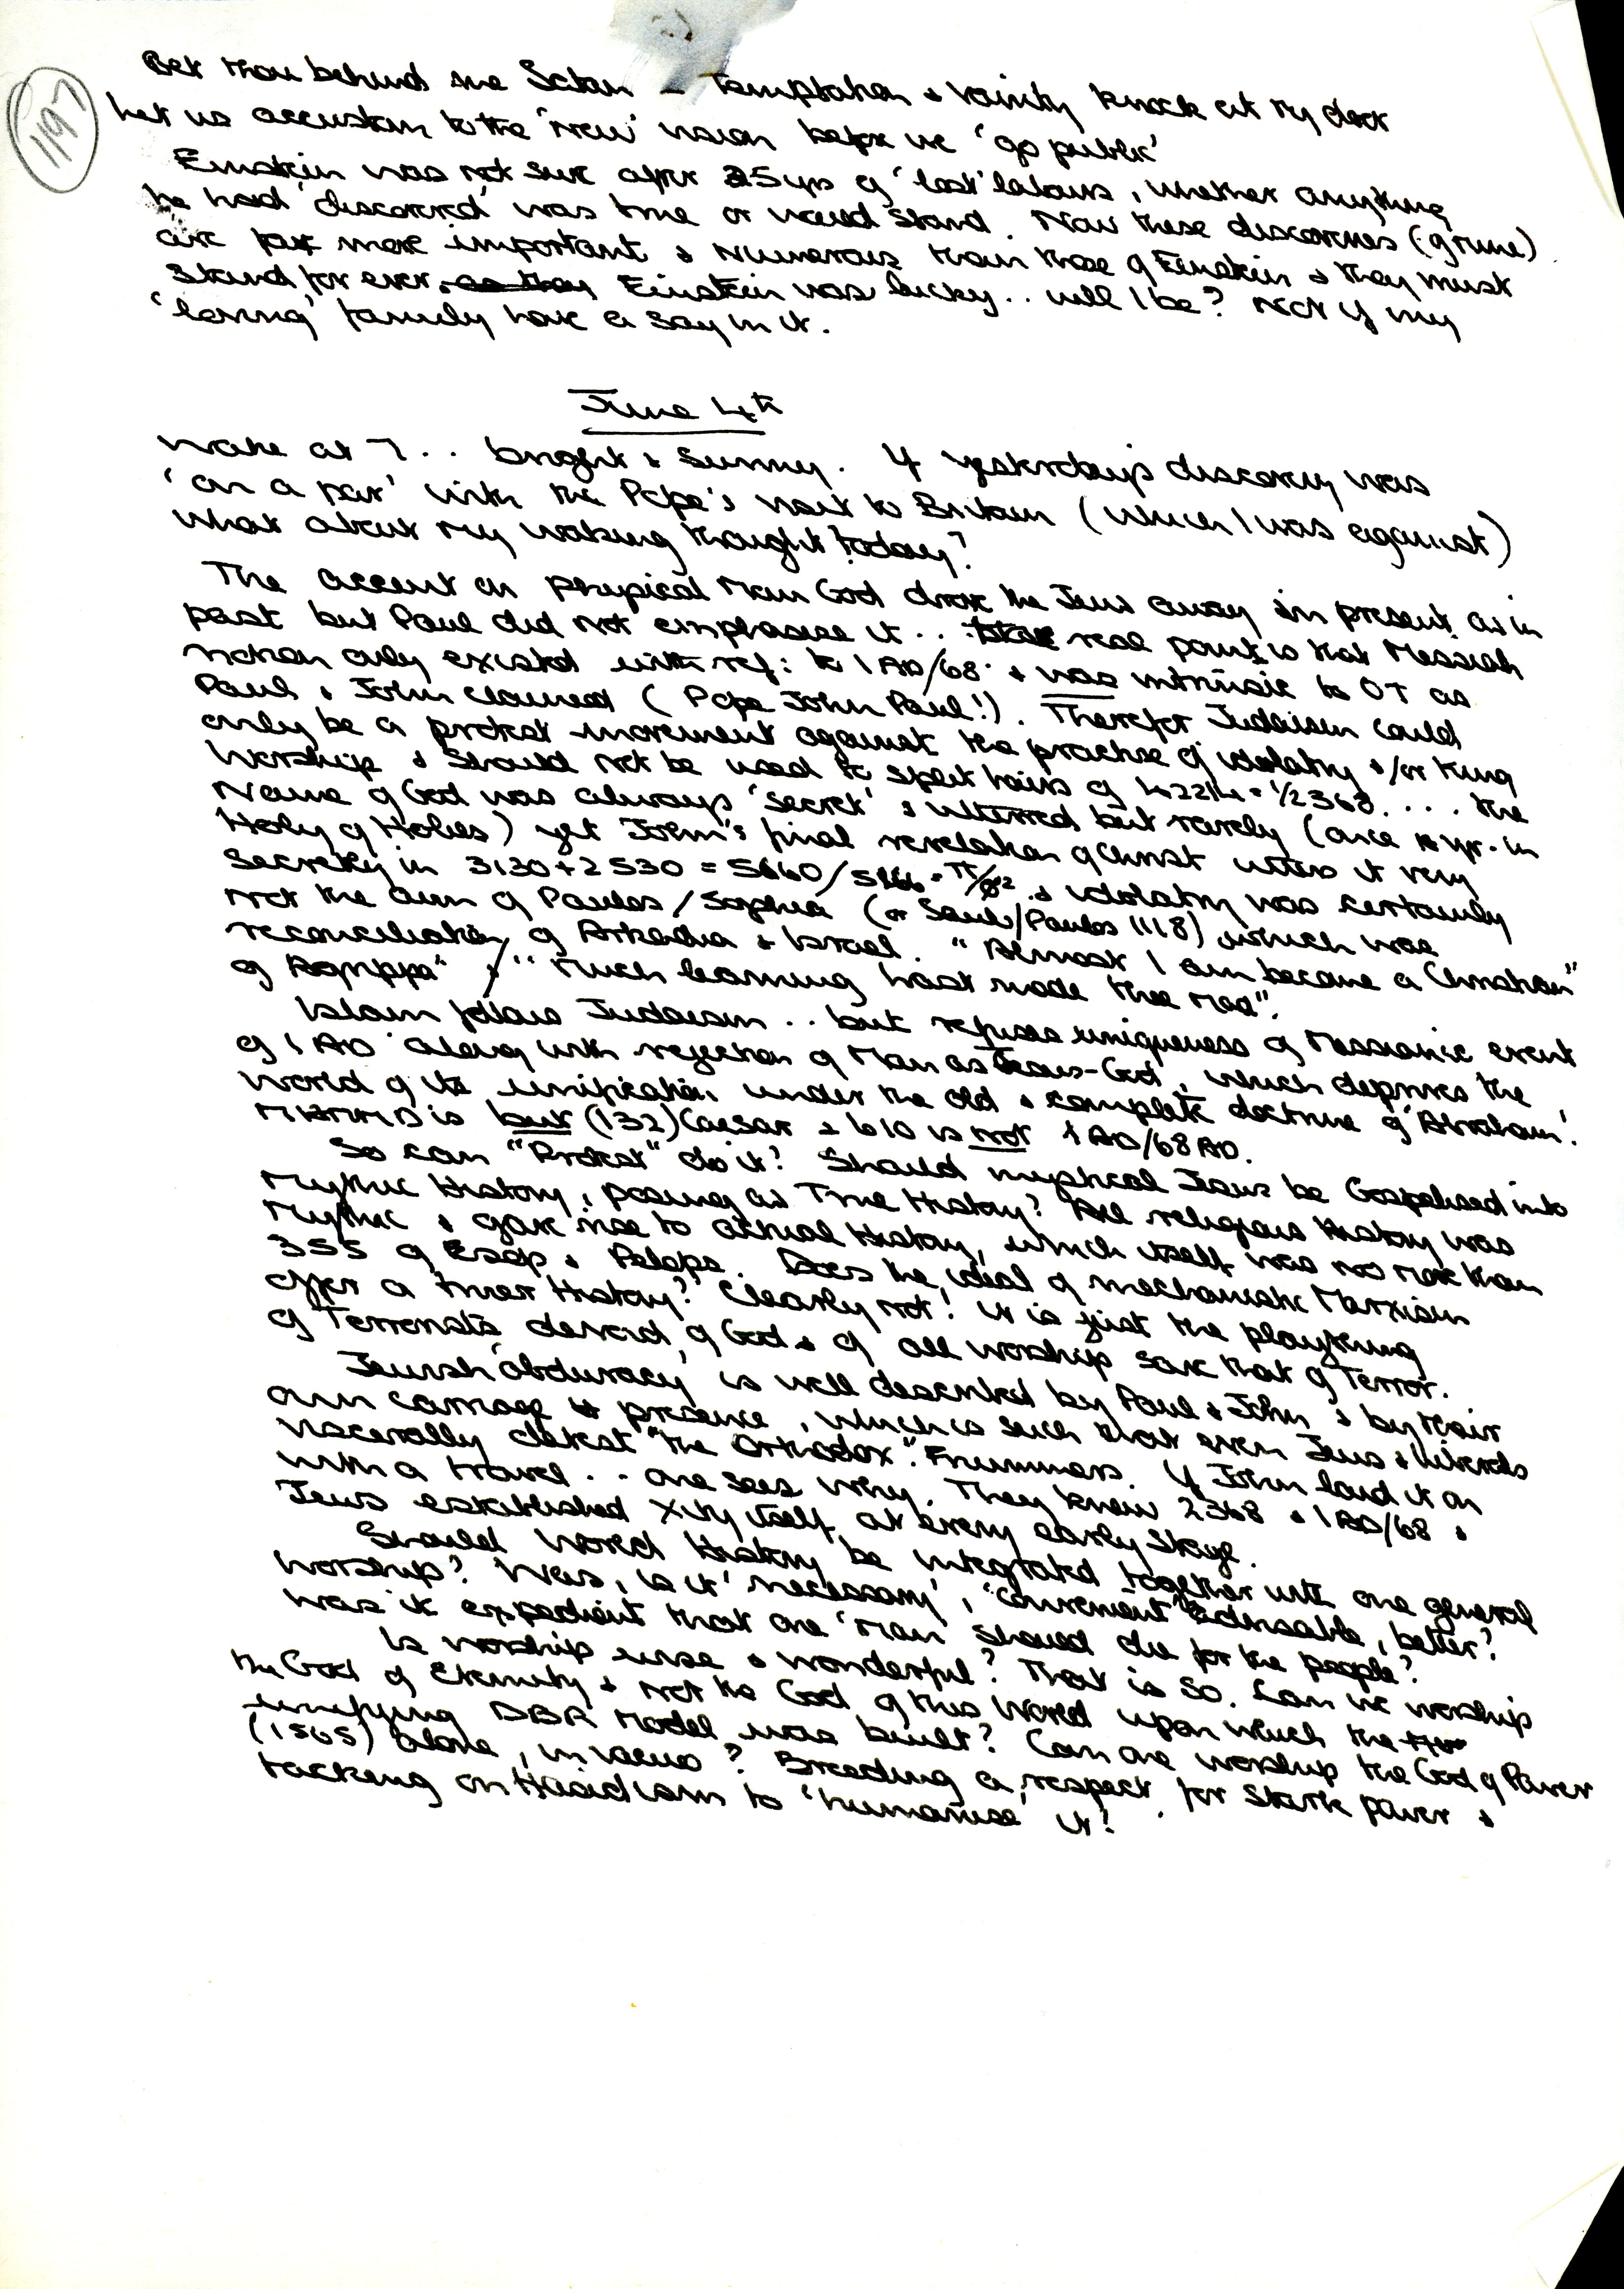 1197
Get thou behind me Satan – Temptation & vanity knock at my door
Let us accustom to the 'new' vision before we 'go public'
Einstein was not sure after 25 yrs of 'lost' labours, whether anything
he had 'discovered' was true or would stand. Now these discoveries (of mine)
are far more important & numerous than those of Einstein & they must
stand for ever, as they Einstein was lucky.. will I be? Not if my
'loving' family have a say in it.
June 4th
Wake at 7.. bright & sunny. If yesterday's discovery was
'on a par' with the Pope's visit to Britain (which I was against)
what about my waking thought today?
The accent on physical Man God drove the Jews away in present as in
past but Paul did not emphasise it.. real point is that Messiah
notion only existed with ref: to 1 AD/68 & was intrinsic to OT as
Paul & John claimed (Pope John Paul!). Therefor Judaism could
only be a protest movement against the practise of idolatry &/or King
Worship & should not be used to split hairs of 1/2 2368.... the
Name of God was always 'secret' & uttered but rarely (once p yr. in
Holy of Holies) yet John's final revelation of Christ utters it very
secretly in 3130 + 2530 = 5660/ & idolatry was certainly
not the aim of Paulos/Sophia (or Saul/Paulos 1118) which was
reconciliation of Arkadia & Israel. "Almost I am become a Christian"
of Agrippa" & "Much learning hast made thee mad".
Islam follows Judaism.. but refuses uniqueness of Messianic event
of 1 AD along with rejection of Man as Jesus-God, which deprives the
World of its unification under the old & complete doctrine of 'Abraham'.
is but (132) Caesar & 610 is not 1 AD/68 AD.
So can "Protest" do it? Should mystical Jesus be Gospelised into
Mythic History, posing as True History? All religious History was
Mythic & gave rise to actual History, which itself was no more than
355 of Esop & Pelops. Does the ideal of mechanistic Marxism
offer a truer History? Clearly not! It is just the plaything
of Terrorists devoid of God & of all worship save that of Terror.
Jewish 'obduracy' is well described by Paul & John & by their
own carriage & presence, which is such that even Jews & liberals
viscerally detest "the Orthodox". Frummers. If John laid it on
with a trowel.. one sees why. They knew 2368 & 1 AD/68 &
Jews established Xity itself at every early stage.
Should World History be integrated together with one general
worship? Was, is it 'necessary', 'convenient' advisable, better?
Was it expedient that one 'man' should die for the people?
Is worship wise & wonderful? That is so. Can we worship
the God of Eternity & not the God of this World upon which the
unifying DBR Model was built? Can one worship the God of Power
(1565) alone, in vacuo? Breeding a respect for stark power &
tacking on Hasidism to 'humanise' it!